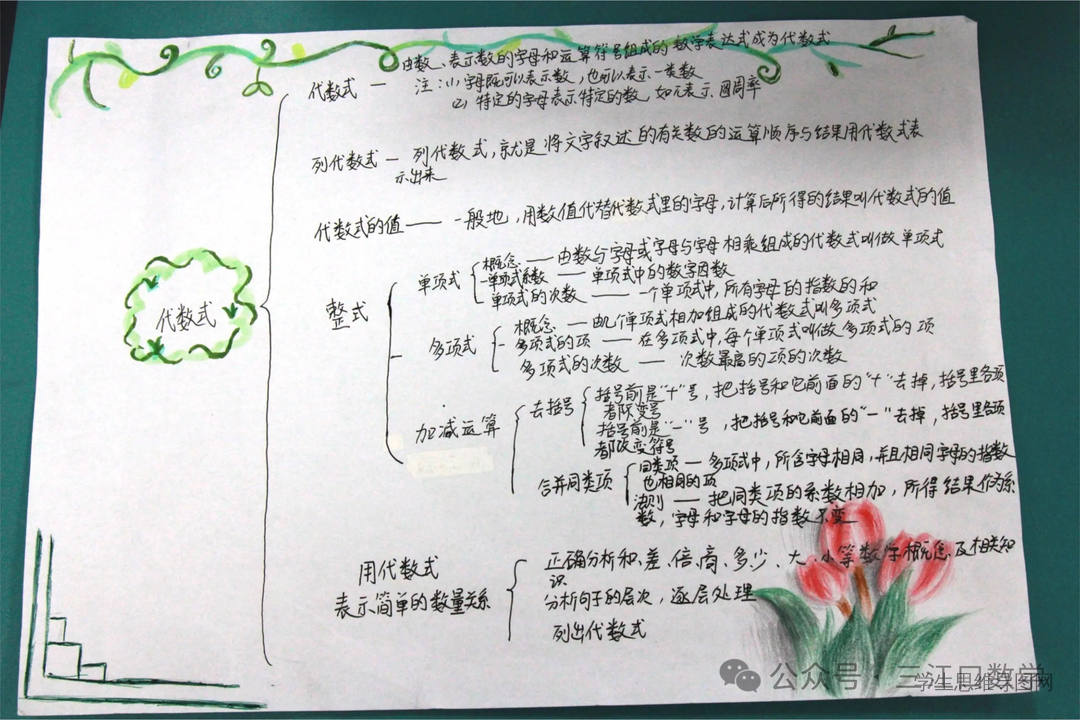 由数、表示数的字母和运算符号组成的数学表达式成为代数式
代数式 — 注:(1)字母既可以表示数,也可以表示一类数
(2) 特定的字母表示特定的数 如π表示圆周率
列代数式 — 列代数式,就是将文字叙述的有关数的运算顺序与结果用代数式表
示出来
代数式的值 —— 一般地,用数值代替代数式里的字母,计算后所得的结果叫代数式的值
代数式
整式
单项式
概念 —— 由数与字母或字母与字母相乘组成的代数式叫做单项式
单项式系数 —— 单项式中的数字因数
单项式的次数 —— 一个单项式中,所有字母的指数的和
多项式
概念 — 由几个单项式相加组成的代数式叫多项式
多项式的项 — 在多项式中,每个单项式叫做多项式的项
多项式的次数 —— 次数最高的项的次数
加减运算
去括号
括号前是“+”号,把括号和它前面的“+”去掉,括号里各项
都不变号
括号前是“-”号,把括号和它前面的“-”去掉,括号里各项
都改变符号
合并同类项
同类项 — 多项式中,所含字母相同,并且相同字母的指数
也相同的项
法则 —— 把同类项的系数相加,所得结果作为系
数,字母和字母的指数不变
用代数式
表示简单的数量关系
正确分析和、差、倍、商、多少、大、小等数字概念及相关知
识
分析句子的层次,逐层处理
列出代数式
公众号·三江口数学
学生思维导图网